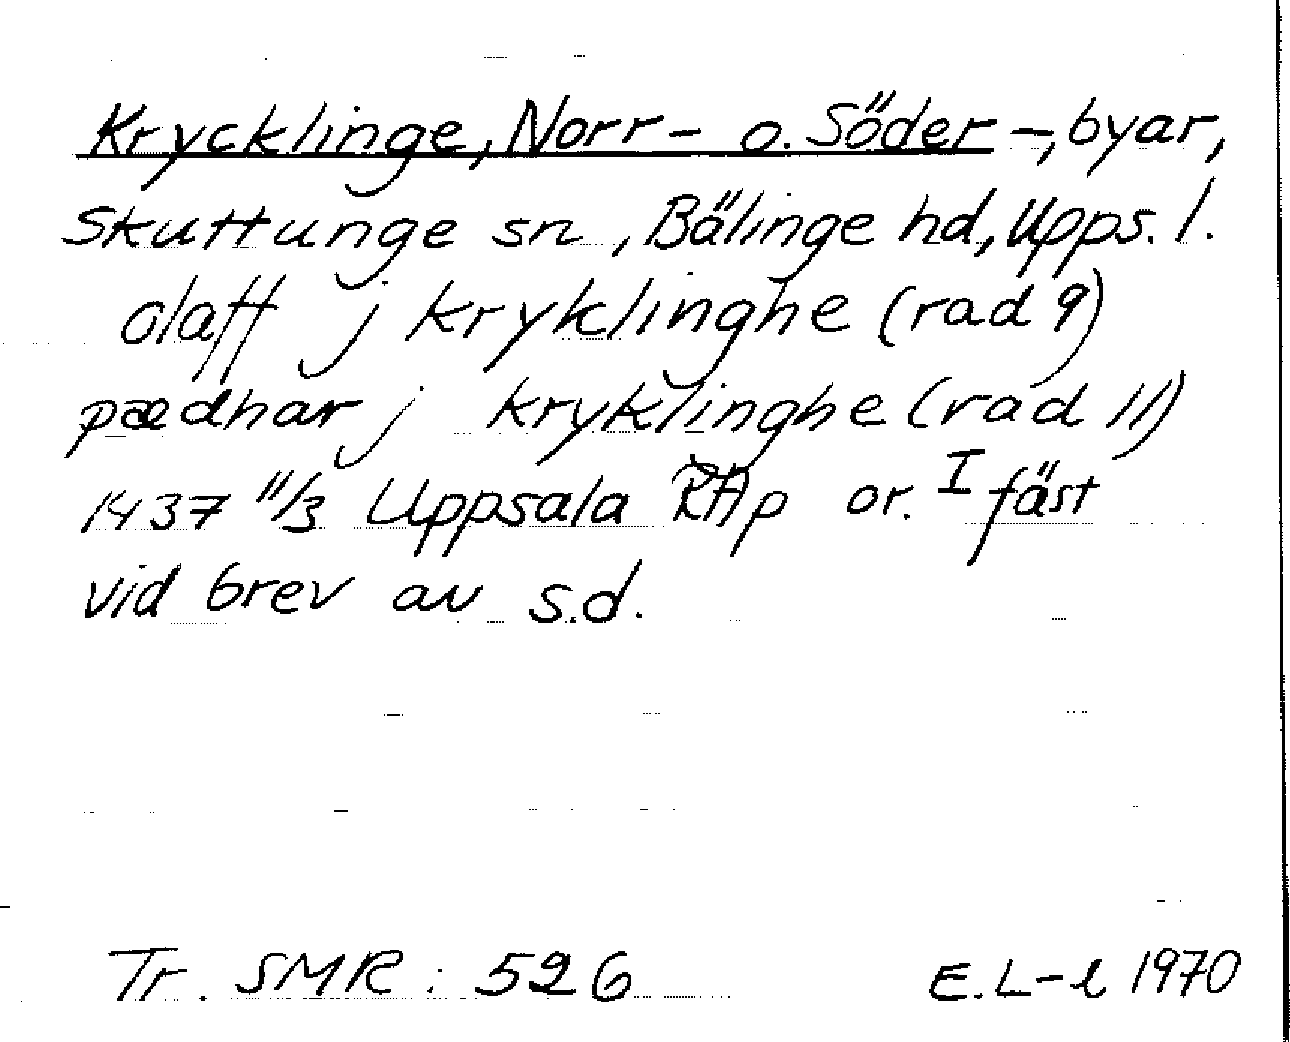 Krycklinge, Norr- o. Söder-, byar,
Skuttunge sn, Bälinge hd, Upps. l.
olaff j krykinghe (rad 9)
pædhar j kryklinghe (rad 11)
1437 11/3 Uppsala RAp or. I fäst
vid brev av s.d.
Tr. SMR: 526 E.L-l 1970